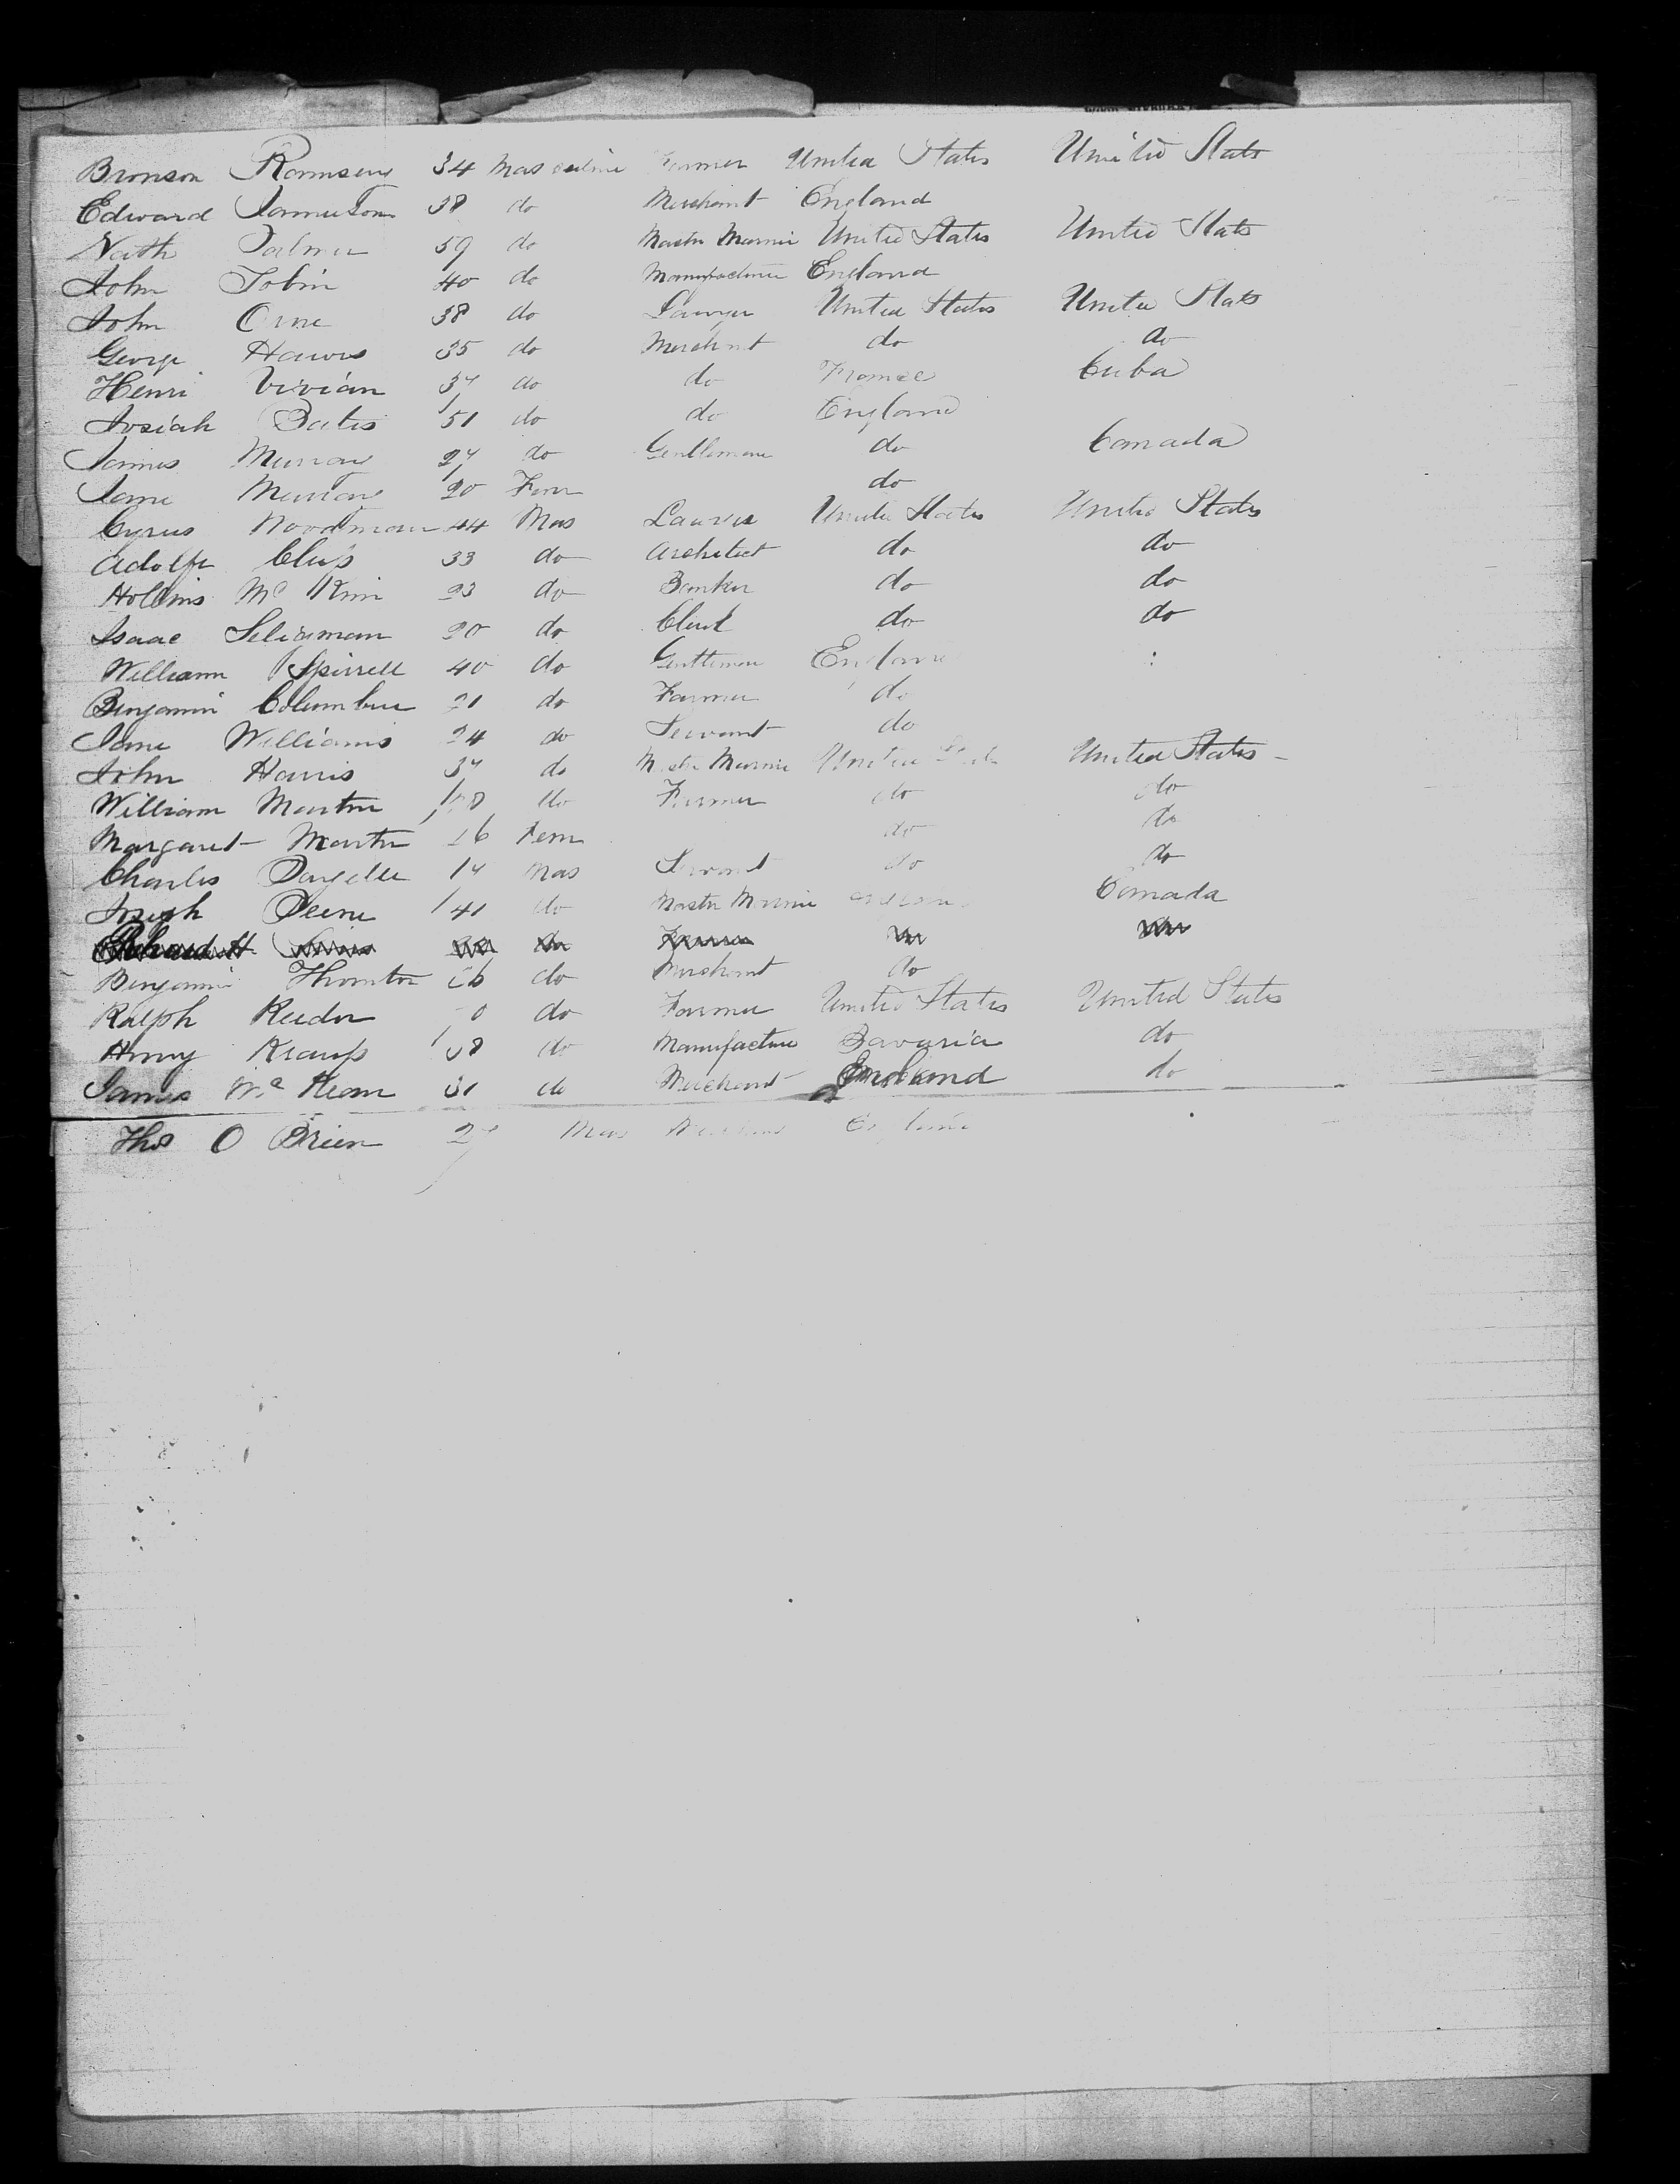 Bronson Ramsey 34 Masculine Farmer United States United Stats
Edward Jamieson 38 do Merchant England
Nath Palmer 59 do Master Marnir United States United Stats
John Tobin 40 do Manufacturer England
John Orne 38 do Lawyer United States United Stats
George Hawes 35 do Merchant do do
Henri Vivian 37 do do France Cuba
Josiah Bates 51 do do England
James Murray 27 do Gentleman do Canada
Jane Murray 20 Fem do
Cyrus Woodman 44 Mas Lawyer United States United States
Adolfe Clus 33 do Architect do do
Hollins Mc Kim 23 do Banker do do
Isaac Seligman 20 do Clerk do do
William Spirrell 40 do Gentleman England
Benjamin Columbus 21 do Farmer do
Jane Williams 24 do Servant do
John Harris 37 do Mastr Marnir United States United States
William Martin 28 do Farmer do do
Margaret Martin 26 Fem do do
Charles 17 Mas Servant do do
Joseph 41 do Mastr Marnir Canada
Richard H do
Benjamin Thornton do Merchant do
Ralph Reeder do Farmer United States United States
Henry Kraus 38 do Manufacturer Bavaria do
James Mc Kean 31 do Merchant England do
Thos O Brien 27 Mas England